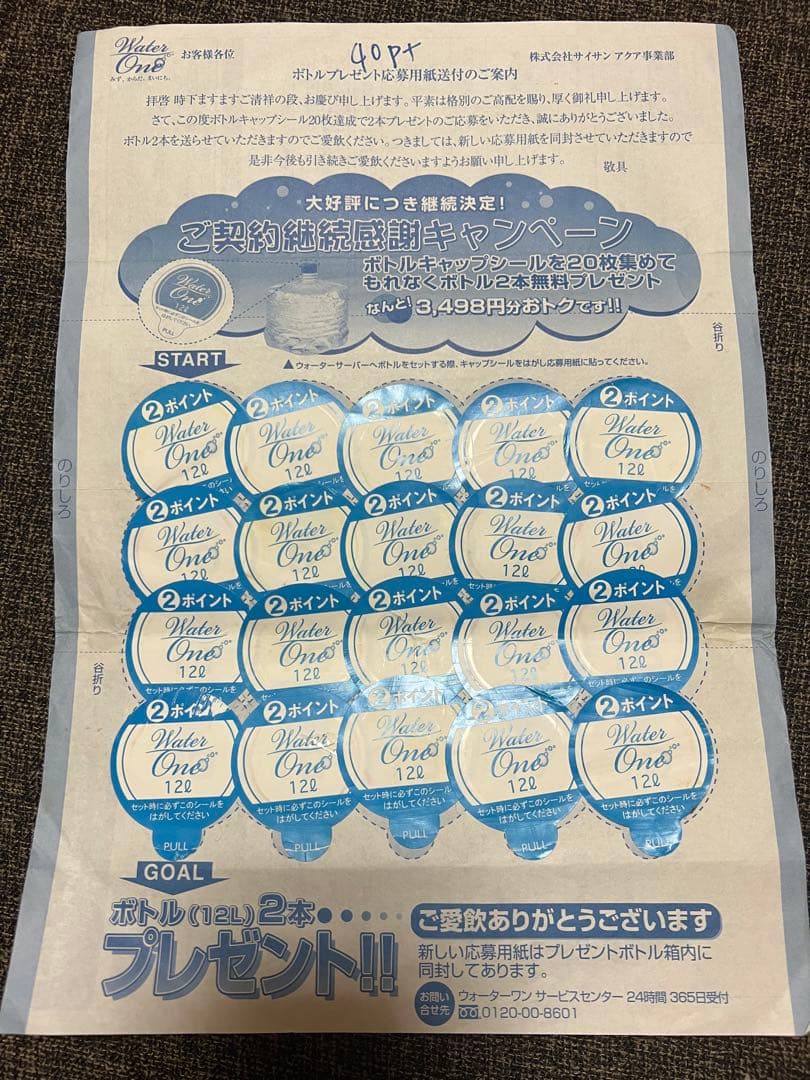 Water One
みず、からだ、まいにち。
お客様各位
40pt
株式会社サイサン アクア事業部
ボトルプレゼント応募用紙送付のご案内
拝啓 時下ますますご清祥の段、お慶び申し上げます。平素は格別のご高配を賜り、厚く御礼申し上げます。
さて、この度ボトルキャップシール20枚達成で2本プレゼントのご応募をいただき、誠にありがとうございました。
ボトル2本を送らせていただきますのでご愛飲ください。つきましては、新しい応募用紙を同封させていただきますので
是非今後も引き続きご愛飲くださいますようお願い申し上げます。
敬具
大好評につき継続決定!
ご契約継続感謝キャンペーン
ボトルキャップシールを20枚集めて
もれなくボトル2本無料プレゼント
なんと! 3,498円分おトクです!!
Water One
12ℓ
PULL
谷折り
START
▲ウォーターサーバーへボトルをセットする際、キャップシールをはがし応募用紙に貼ってください。
②ポイント ②ポイント ②ポイント ②ポイント ②ポイント
Water Water Water Water Water
One One One One One
12ℓ 12ℓ 12ℓ 12ℓ 12ℓ
のりしろ
のりしろ
②ポイント ②ポイント ②ポイント ②ポイント ②ポイント
Water Water Water Water Water
One One One One One
12ℓ 12ℓ 12ℓ 12ℓ 12ℓ
②ポイント ②ポイント ②ポイント ②ポイント ②ポイント
Water Water Water Water Water
One One One One One
12ℓ 12ℓ 12ℓ 12ℓ 12ℓ
セット時に必ずこのシールを
谷折り
②ポイント ②ポイント ②ポイント ②ポイント ②ポイント
Water Water Water Water Water
One One One One One
12ℓ 12ℓ 12ℓ 12ℓ 12ℓ
セット時に必ずこのシールを セット時に必ずこのシールを セット時に必ずこのシールを セット時に必ずこのシールを セット時に必ずこのシールを
はがしてください はがしてください はがしてください はがしてください はがしてください
PULL PULL PULL PULL PULL
GOAL
ボトル(12L)2本
プレゼント!!
ご愛飲ありがとうございます
新しい応募用紙はプレゼントボトル箱内に
同封してあります。
お問い合せ先
ウォーターワン サービスセンター 24時間 365日受付
0120-00-8601